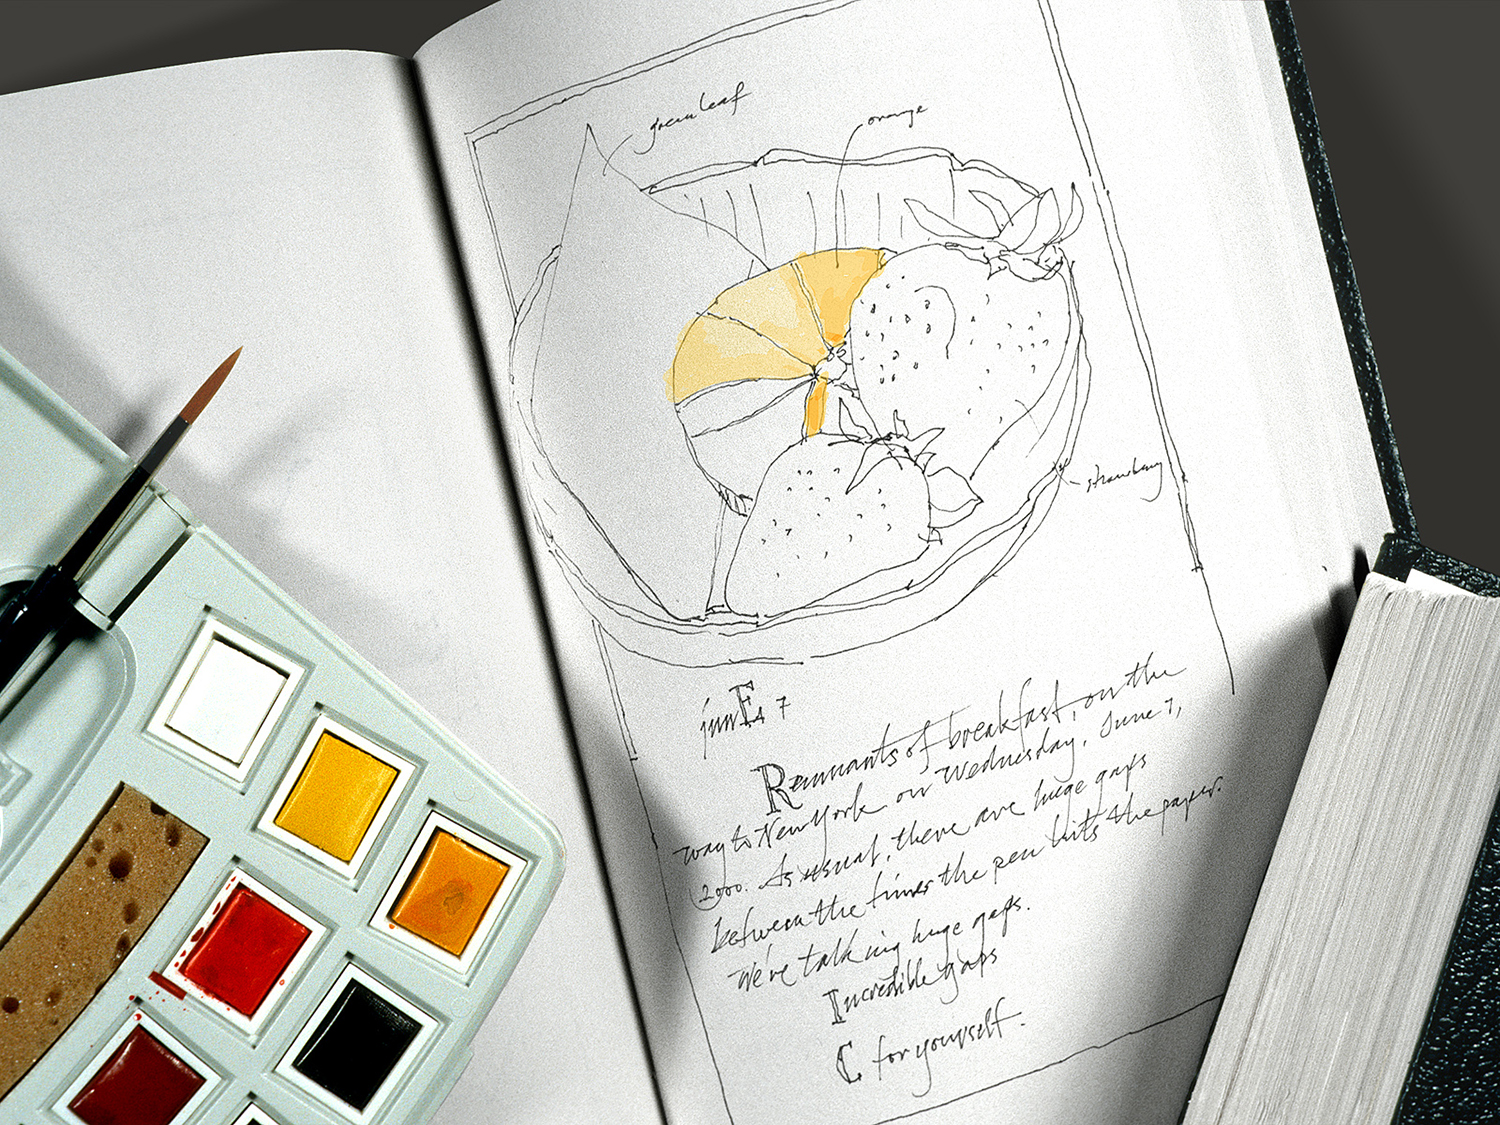 green leaf
orange
strawberry
junE 7
Remnants of breakfast, on the
way to New York on Wednesday, June 7,
2000. As usual, there are huge gaps
between the times the pen hits the paper.
We're talking huge gaps.
Incredible gaps
C for yourself.